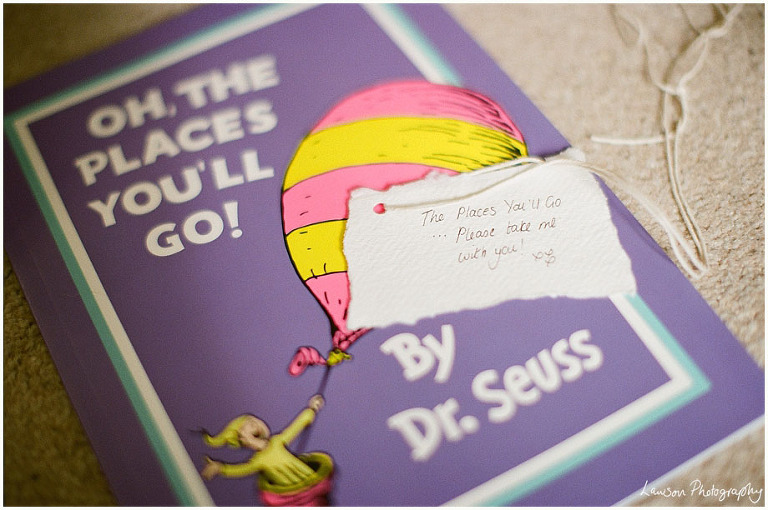 OH, THE
PLACES
YOU'LL
GO!
The Places You'll Go
... Please take me
with you! xx
By
Dr. Seuss
Lawson Photography